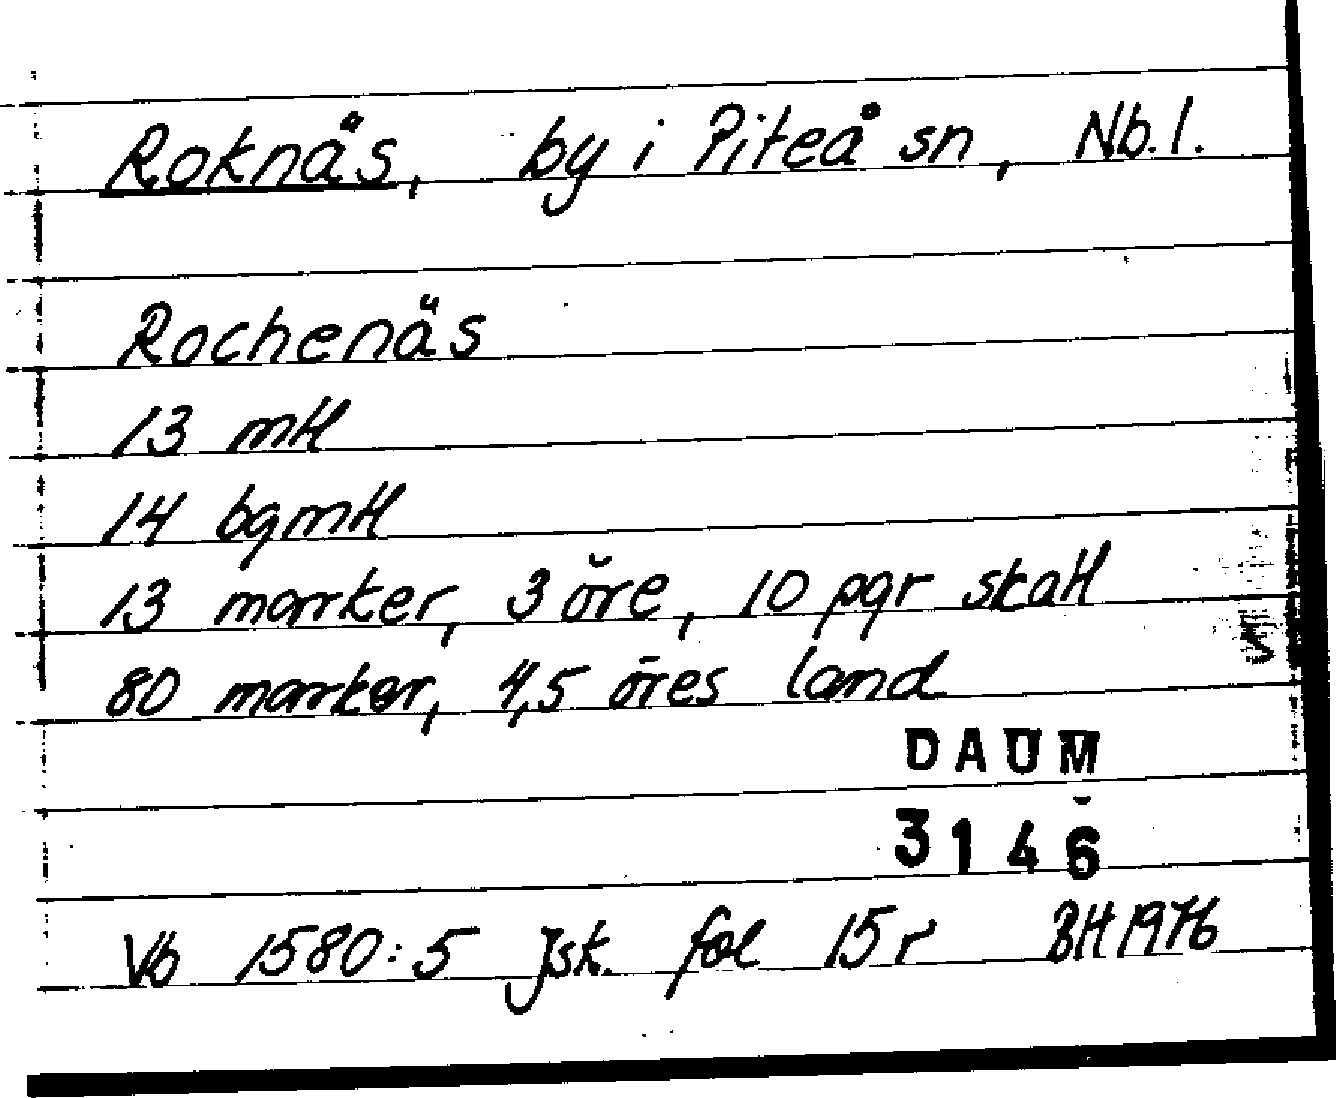 Roknäs, by i Piteå sn, Nb.l.
Rochenäs
13 mtl
14 bgmtl
13 marker, 3 öre, 10 pgr skatt
80 marker, 4,5 öres land
DAUM
3146
Vb 1580:5 Jsk. fol 15r BH 1976